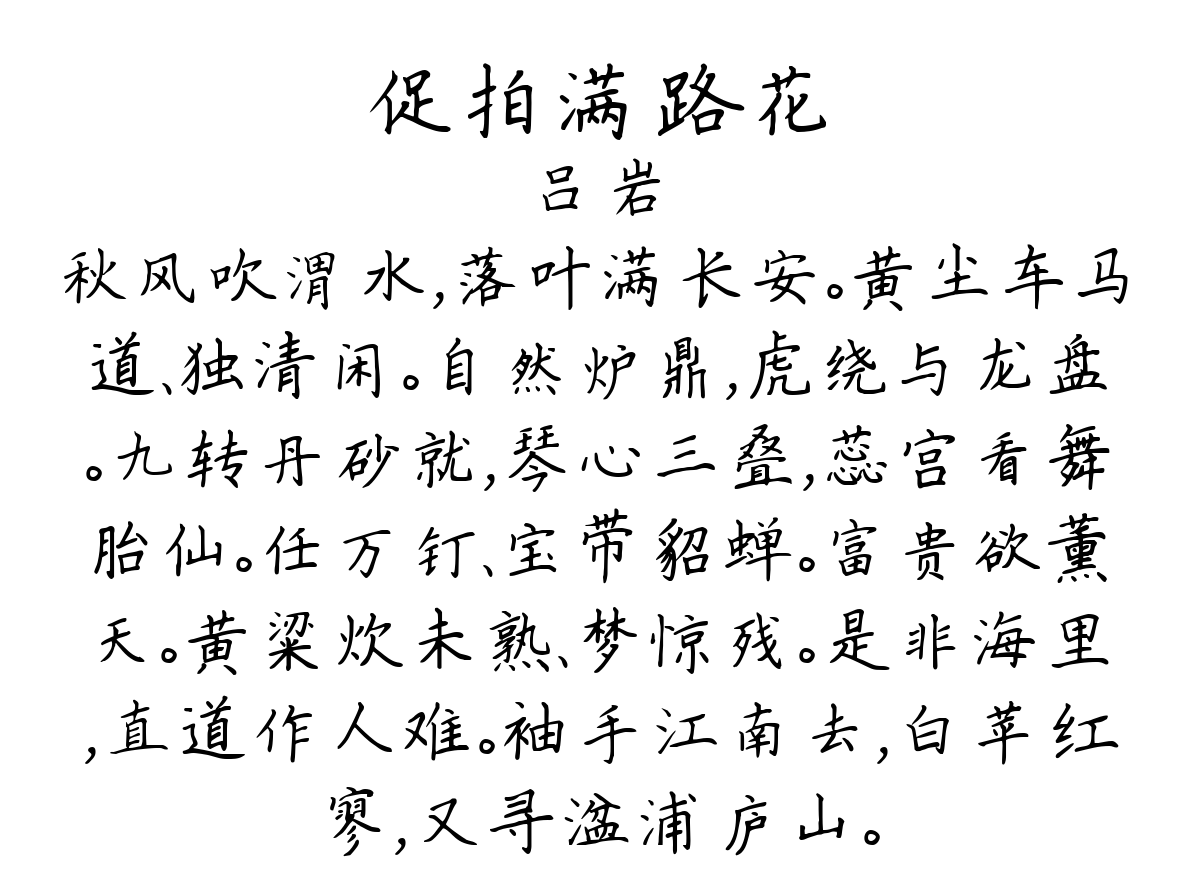 促拍满路花
吕岩
秋风吹渭水,落叶满长安。黄尘车马
道、独清闲。自然炉鼎,虎绕与龙盘
。九转丹砂就,琴心三叠,蕊宫看舞
胎仙。任万钉、宝带貂蝉。富贵欲薰
天。黄粱炊未熟、梦惊残。是非海里
,直道作人难。袖手江南去,白苹红
寥,又寻湓浦庐山。